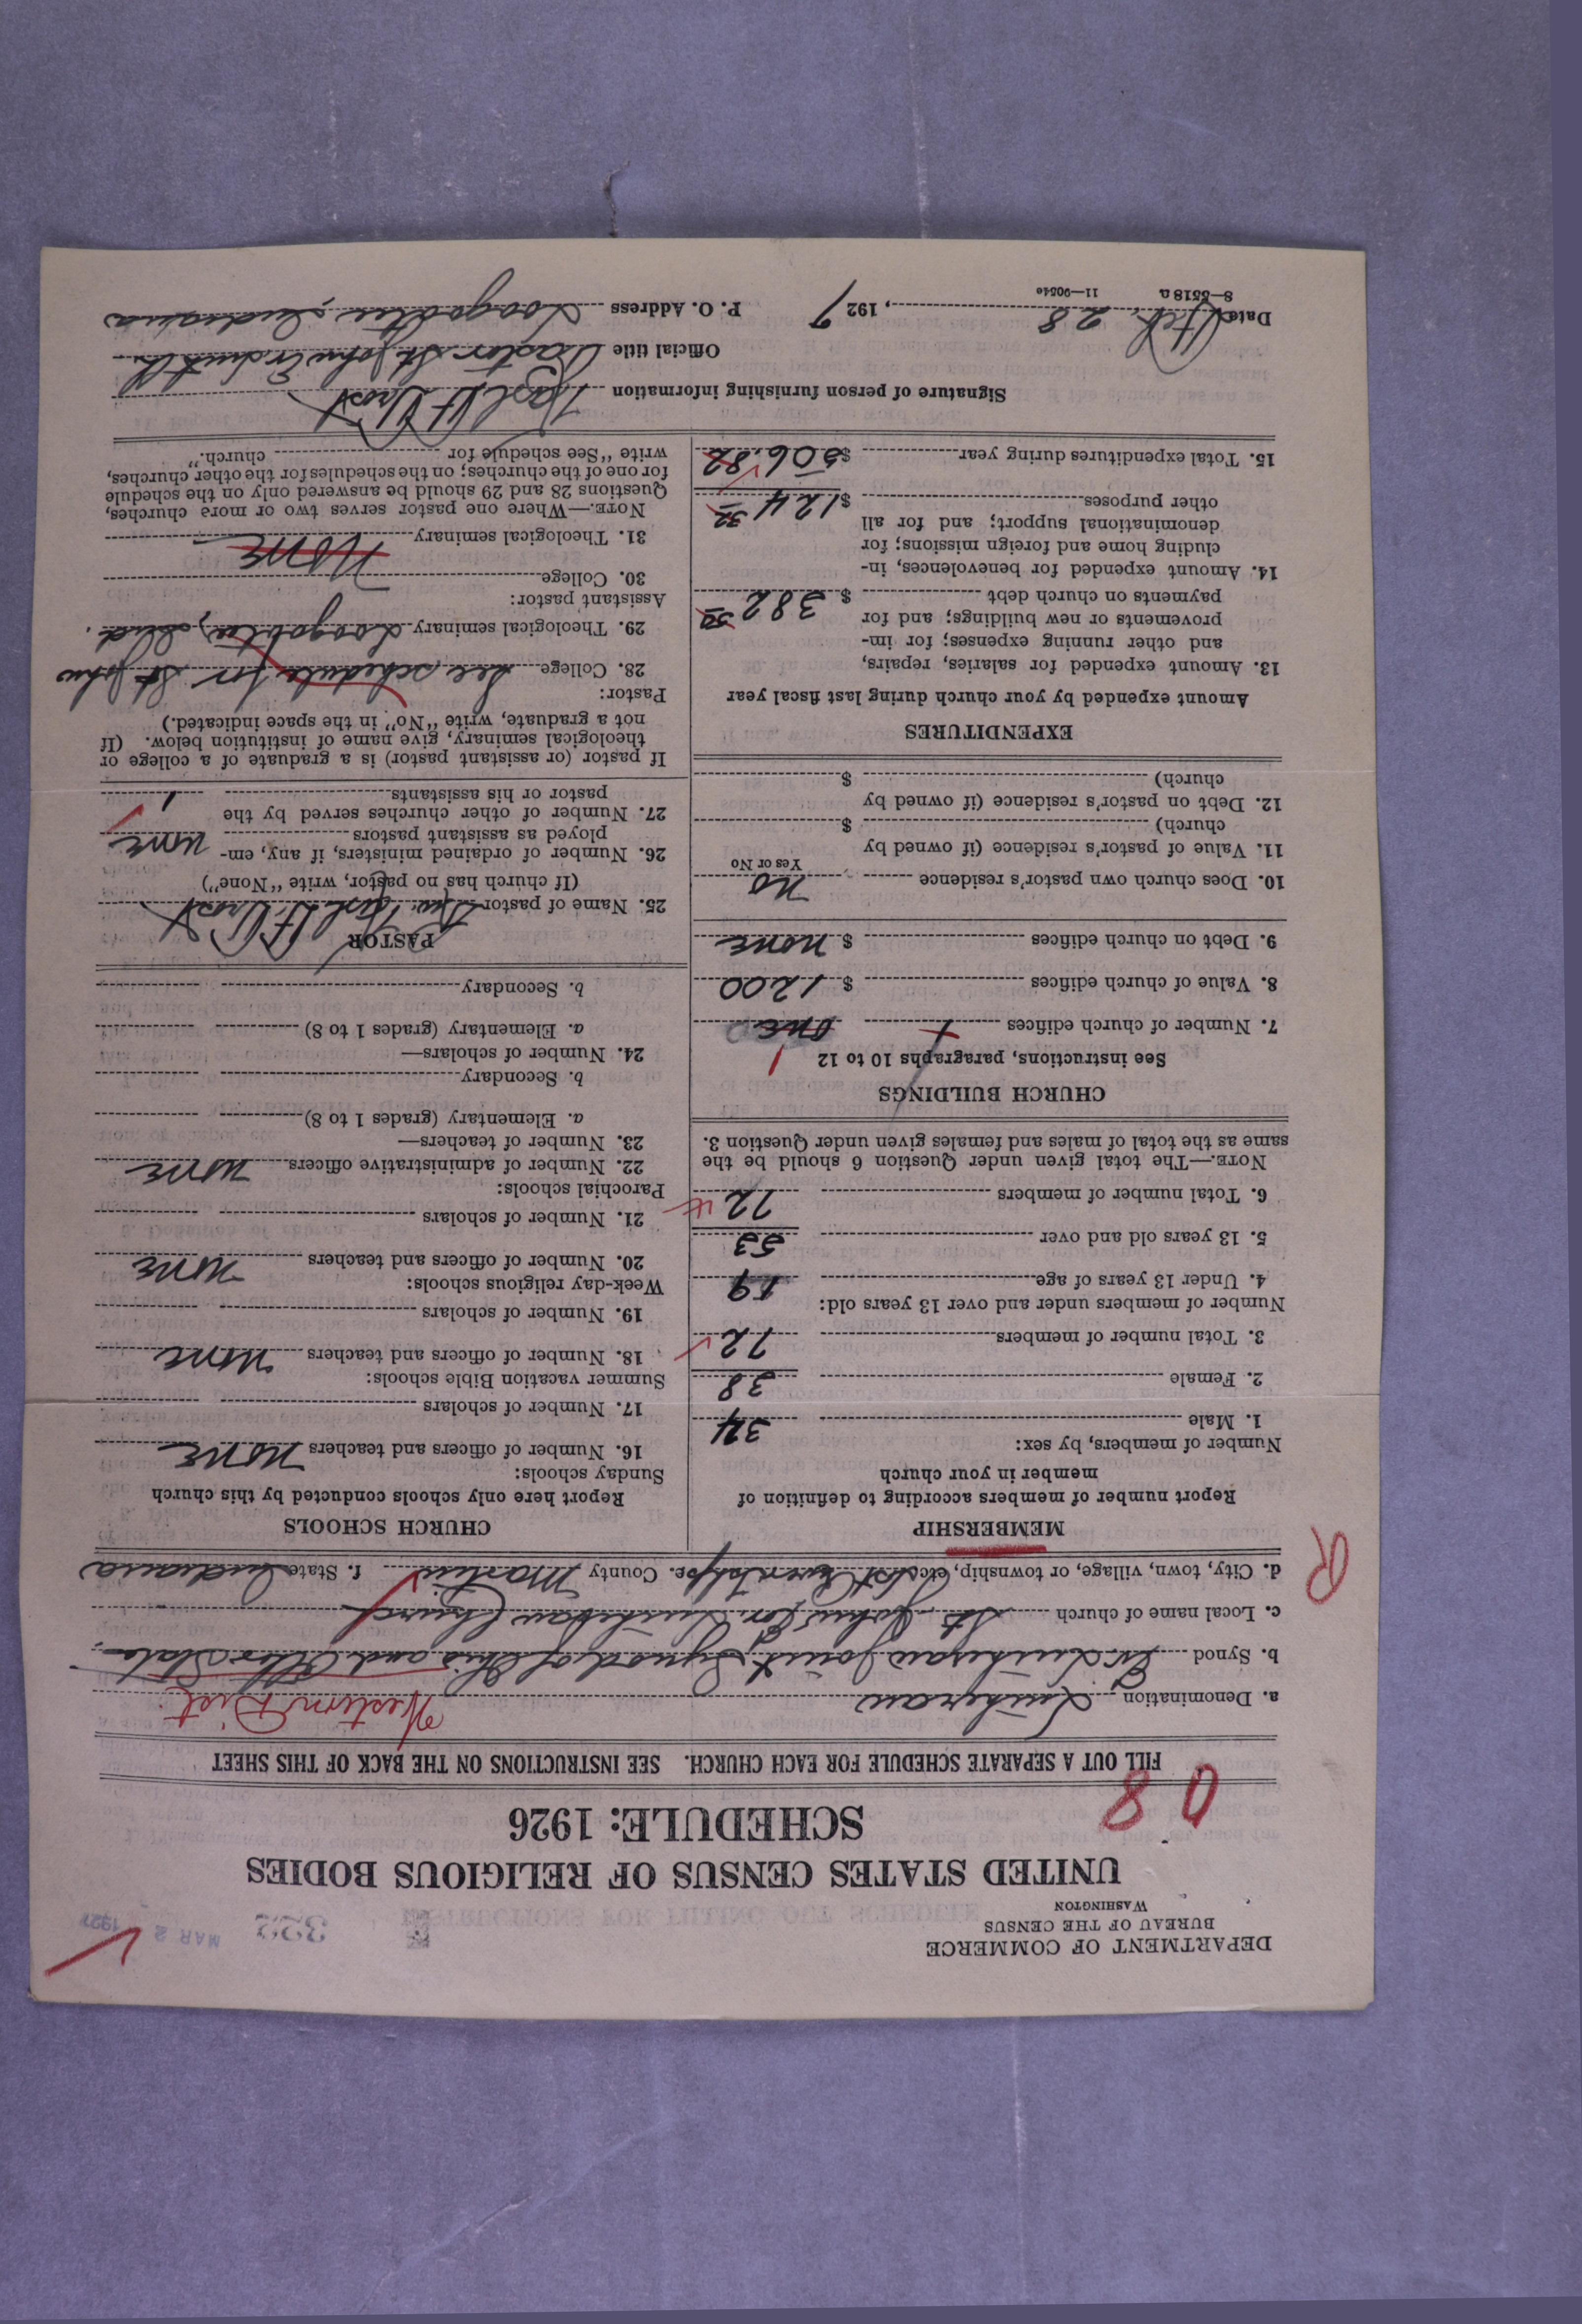 DEPARTMENT OF COMMERCE
BUREAU OF THE CENSUS
WASHINGTON
MAR 2 1927
UNITED STATES CENSUS OF RELIGIOUS BODIES
SCHEDULE: 1926
FILL OUT A SEPARATE SCHEDULE FOR EACH CHURCH. SEE INSTRUCTIONS ON THE BACK OF THIS SHEET
Western Dist.
a. Denomination Lutheran
b. Synod Ev. Lutheran Joint Synod of Ohio and Other States
c. Local name of church St. John's Ev. Lutheran Church
d. City, town, village, or township, etc. e. County Martin f. State Indiana
MEMBERSHIP
Report number of members according to definition of
member in your church
Number of members, by sex:
1. Male 34
2. Female 38
3. Total number of members 72
Number of members under and over 13 years old:
4. Under 13 years of age 19
5. 13 years old and over 53
6. Total number of members 72
NOTE.—The total given under Question 6 should be the
same as the total of males and females given under Question 3.
CHURCH BUILDINGS
See instructions, paragraphs 10 to 12
7. Number of church edifices one 1
8. Value of church edifices $ 1200
9. Debt on church edifices $ none
10. Does church own pastor's residence no
Yes or No
11. Value of pastor's residence (if owned by
church) $
12. Debt on pastor's residence (if owned by
church) $
EXPENDITURES
Amount expended by your church during last fiscal year
13. Amount expended for salaries, repairs,
and other running expenses; for im-
provements or new buildings; and for
payments on church debt $ 382 50
14. Amount expended for benevolences, in-
cluding home and foreign missions; for
denominational support; and for all
other purposes $ 124 32
15. Total expenditures during year $ 506.82
CHURCH SCHOOLS
Report here only schools conducted by this church
Sunday schools:
16. Number of officers and teachers none
17. Number of scholars
Summer vacation Bible schools:
18. Number of officers and teachers none
19. Number of scholars
Week-day religious schools:
20. Number of officers and teachers none
21. Number of scholars
Parochial schools:
22. Number of administrative officers none
23. Number of teachers—
a. Elementary (grades 1 to 8)
b. Secondary
24. Number of scholars—
a. Elementary (grades 1 to 8)
b. Secondary
PASTOR
25. Name of pastor Karl H.
(If church has no pastor, write "None")
26. Number of ordained ministers, if any, em-
ployed as assistant pastors none
27. Number of other churches served by the
pastor or his assistants 1
If pastor (or assistant pastor) is a graduate of a college or
theological seminary, give name of institution below. (If
not a graduate, write "No" in the space indicated.)
Pastor:
28. College See schedule for St. John
29. Theological seminary Loogootee, Ind.
Assistant pastor:
30. College
None
31. Theological seminary
NOTE.—Where one pastor serves two or more churches,
Questions 28 and 29 should be answered only on the schedule
for one of the churches; on the schedules for the other churches,
write "See schedule for church."
Signature of person furnishing information Karl H.
Official title Pastor St. John Ev. Luth. Ch.
Date Feb 28, 1927 P. O. Address Loogootee, Indiana
8—5518a 11—9054e